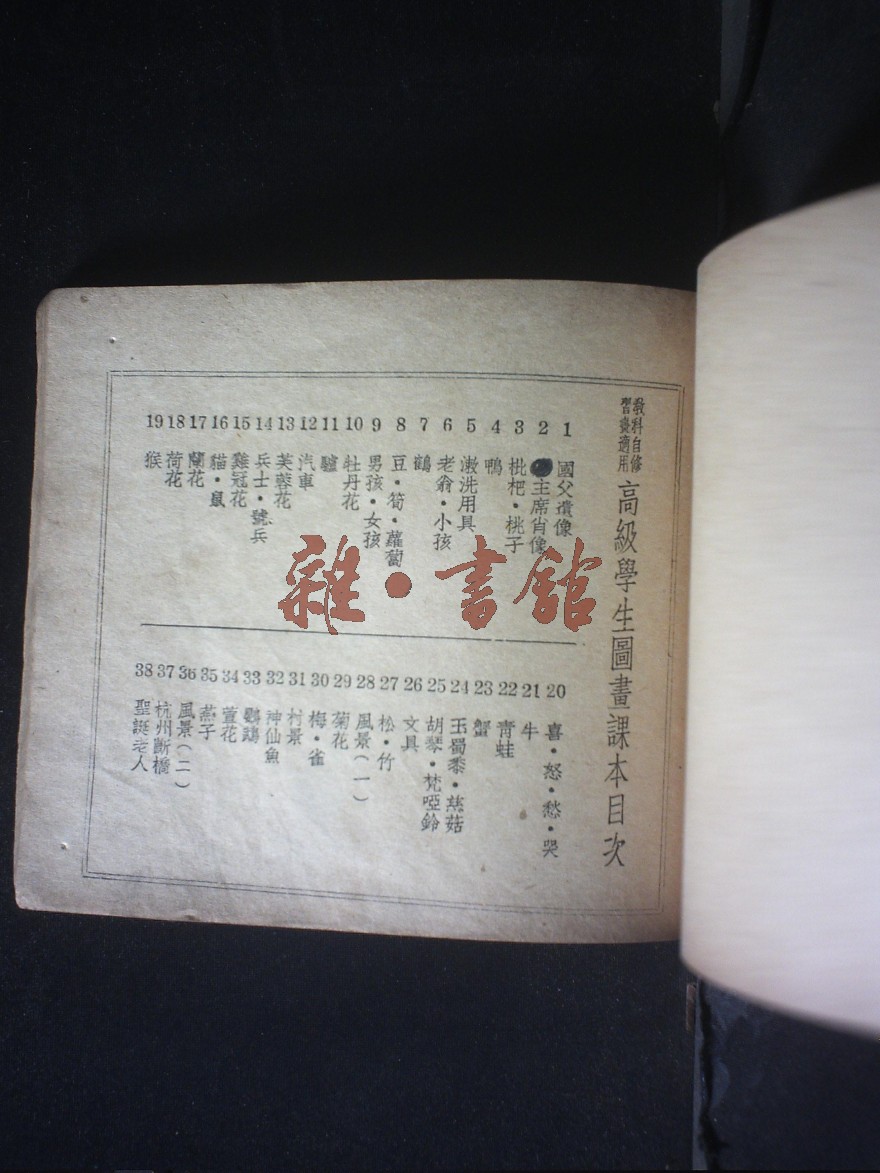 教科自修
習畫適用
高級學生圖畫課本目次
1 國父遺像
2 主席肖像
3 枇杷・桃子
4 鴨
5 漱洗用具
6 老翁・小孩
7 鶴
8 豆・筍・蘿蔔
9 男孩・女孩
10 牡丹花
11 驢
12 汽車
13 芙蓉花
14 兵士・號兵
15 雞冠花
16 貓・鼠
17 蘭花
18 荷花
19 猴
20 喜・怒・愁・哭
21 牛
22 青蛙
23 蟹
24 玉蜀黍・慈菇
25 胡琴・梵啞鈴
26 文具
27 松・竹
28 風景(一)
29 菊花
30 梅・雀
31 村景
32 神仙魚
33 鸚鵡
34 萱花
35 燕子
36 風景(二)
37 杭州斷橋
38 聖誕老人
雜・書館